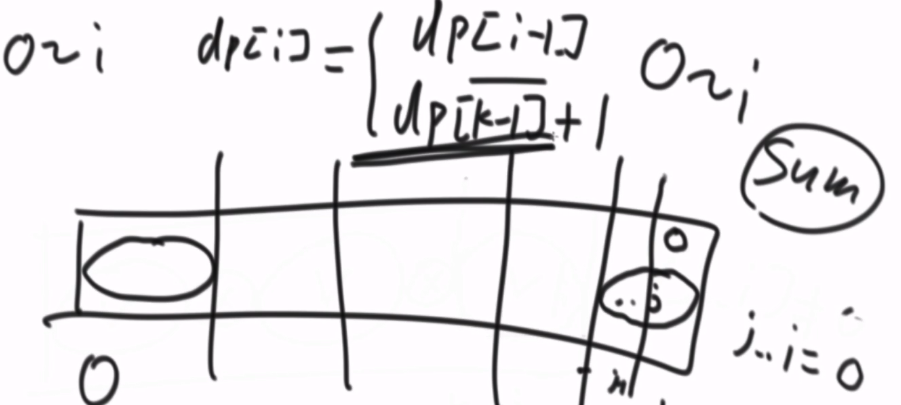 0~i dp[i] = { dp[i-1] 0~i
dp[k-1] + 1
sum
0
j..i=0
0